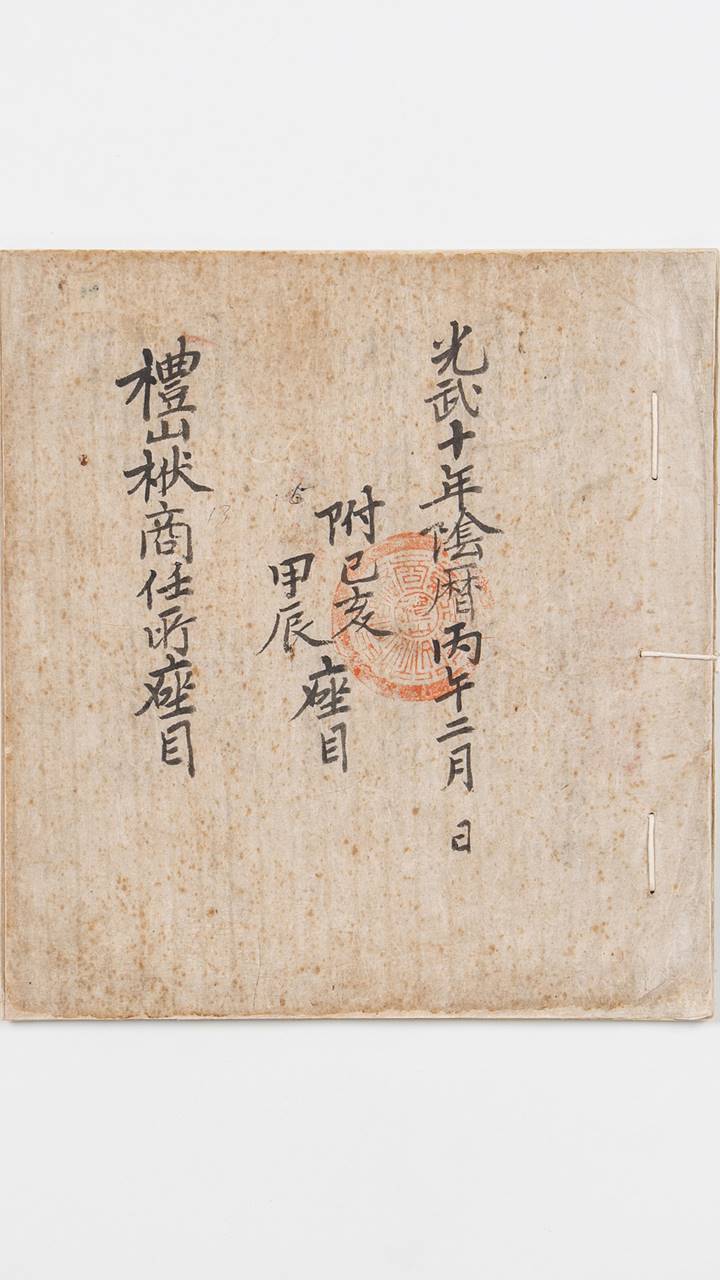 光武十年陰暦丙午二月 日
附己亥
甲辰
座目
禮山栿商任所座目